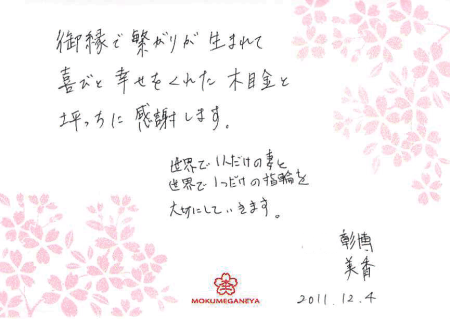 御縁で繋がりが生まれて
喜びと幸せをくれた木目金と
坪っちに感謝します。
世界で1人だけの妻と
世界で1つだけの指輪を
大切にしていきます。
彰博
美香
MOKUMEGANEYA
2011.12.4